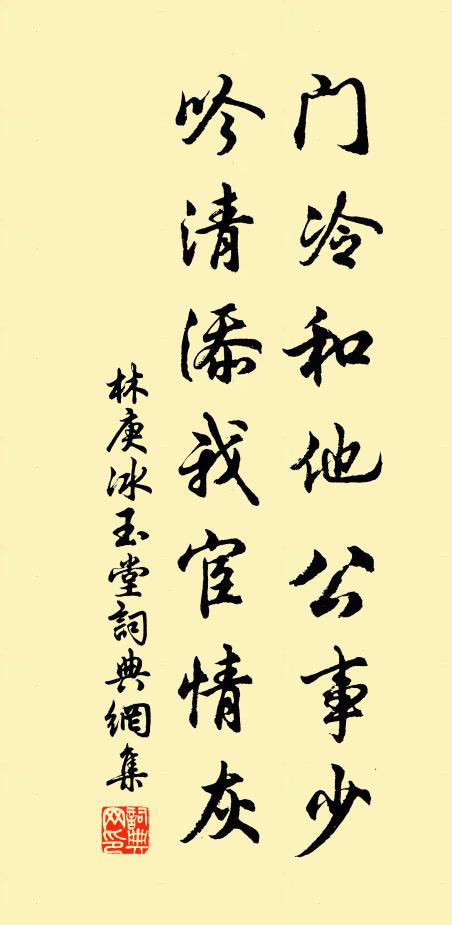 门冷和他公事少
吟清添我宦情灰
林庚冰玉堂詞典網集
詞典网印